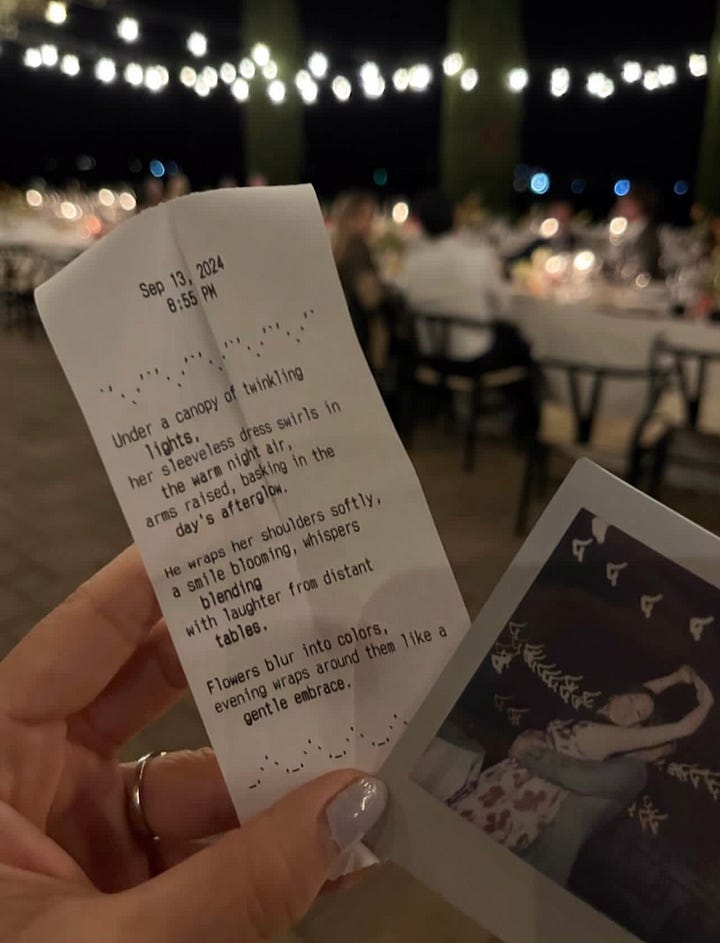 Sep 13, 2024
8:55 PM
Under a canopy of twinkling
lights,
her sleeveless dress swirls in
the warm night air,
arms raised, basking in the
day's afterglow.
He wraps her shoulders softly,
a smile blooming, whispers
blending
with laughter from distant
tables.
Flowers blur into colors,
evening wraps around them like a
gentle embrace.